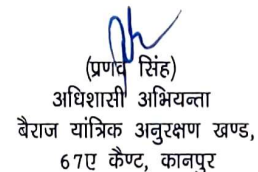 (प्रणव सिंह)
अधिशासी अभियन्ता
बैराज यांत्रिक अनुरक्षण खण्ड,
67ए कैण्ट, कानपुर